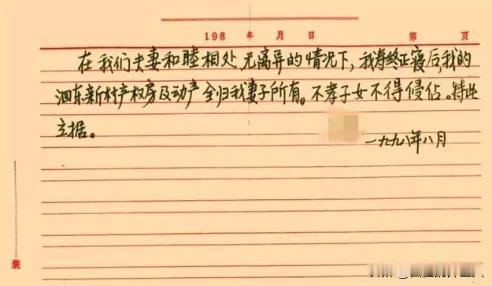 198 年 月 日 第 页
在我们夫妻和睦相处无离异的情况下,我寿终正寝后,我的
泗东新村产权房及动产全归我妻子所有。不孝子女不得侵佔。特此
立据。
一九九八年八月
装